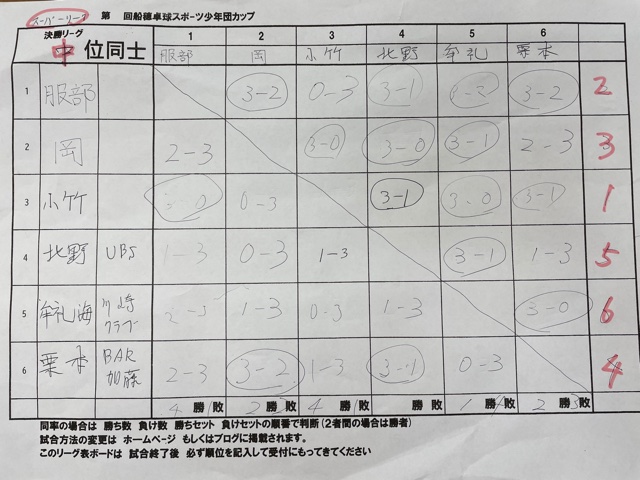 スーパーリーグ 第 回船穂卓球スポーツ少年団カップ
決勝リーグ 1 2 3 4 5 6
中 位同士 服部 岡 小竹 北野 牟礼 栗本
1 服部 3-2 0-3 3-1 3-2 2
2 岡 2-3 3-0 3-0 3-1 2-3 3
3 小竹 3-0 0-3 3-1 3-0 3-1 1
4 北野 UBS 1-3 0-3 1-3 3-1 1-3 5
5 牟礼海 川崎クラブ 2-3 1-3 0-3 1-3 3-0 6
6 栗本 BAR加藤 2-3 3-2 1-3 3-1 0-3 4
勝/敗 勝/敗 勝/敗 勝/敗 勝/敗 勝/敗
同率の場合は 勝ち数 負け数 勝ちセット 負けセットの順番で判断(2者間の場合は勝者)
試合方法の変更は ホームページ もしくはブログに掲載されます。
このリーグ表ボードは 試合終了後 必ず順位を記入して受付にもってきてください